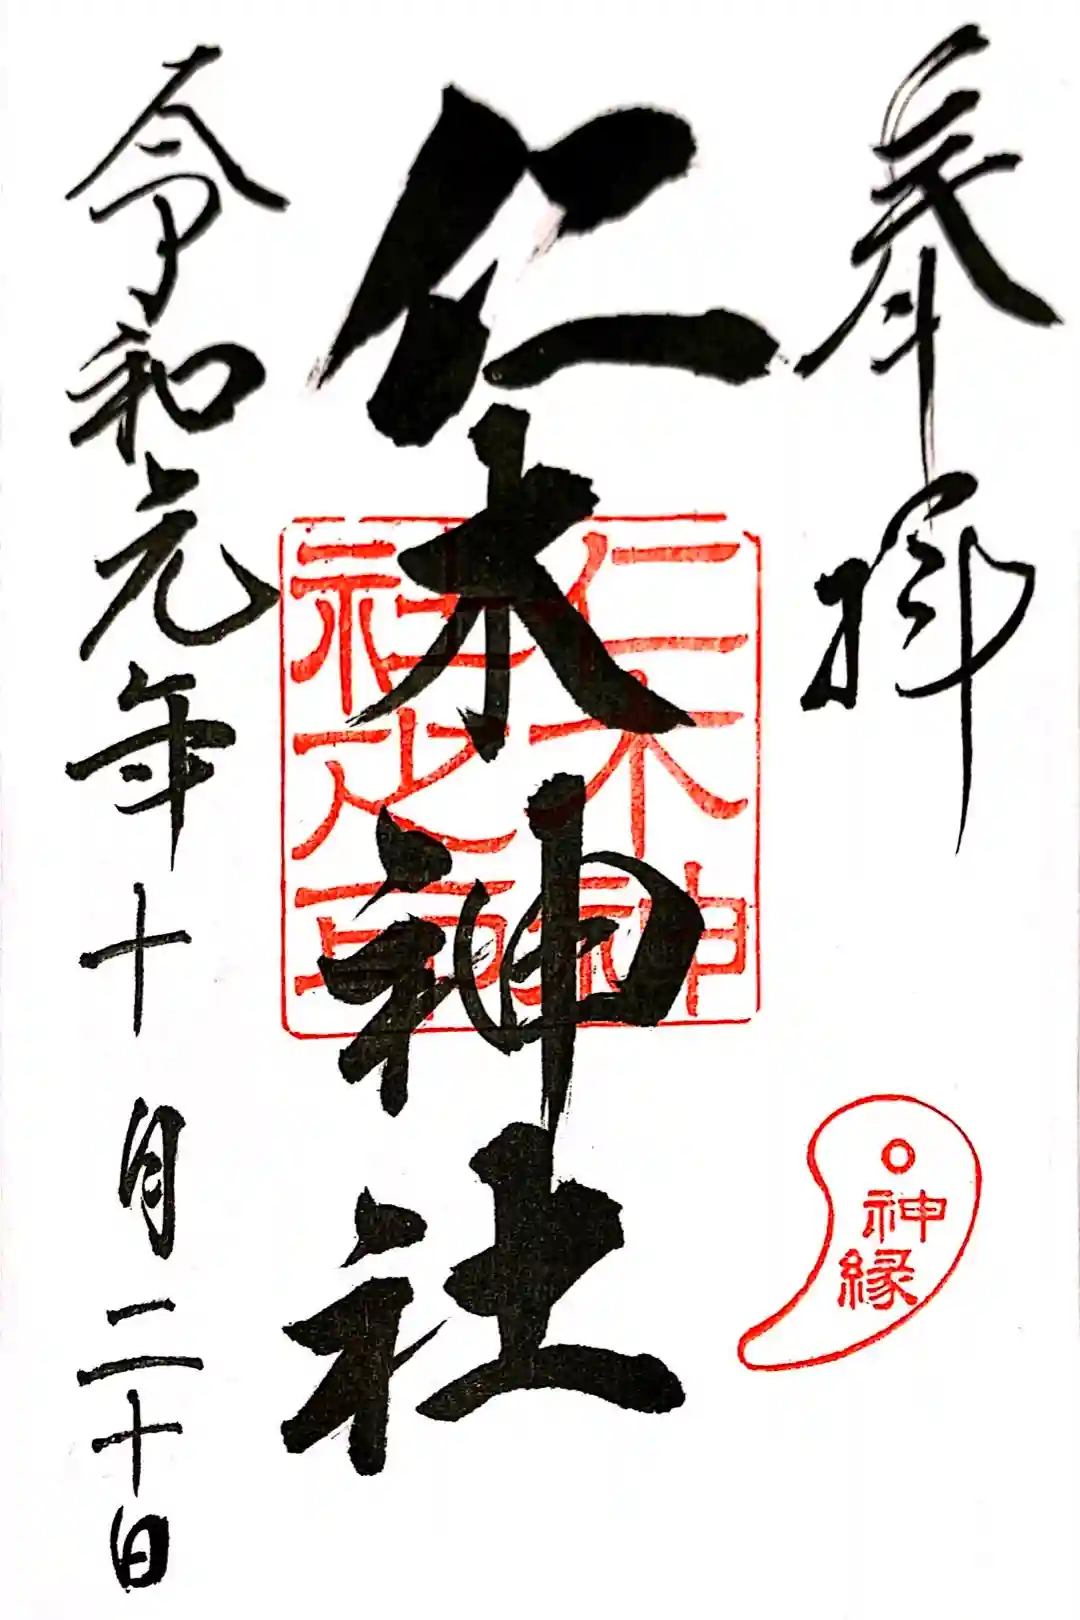 奉拝
仁木神社
仁木神
社之印
神
縁
令和元年十月二十日